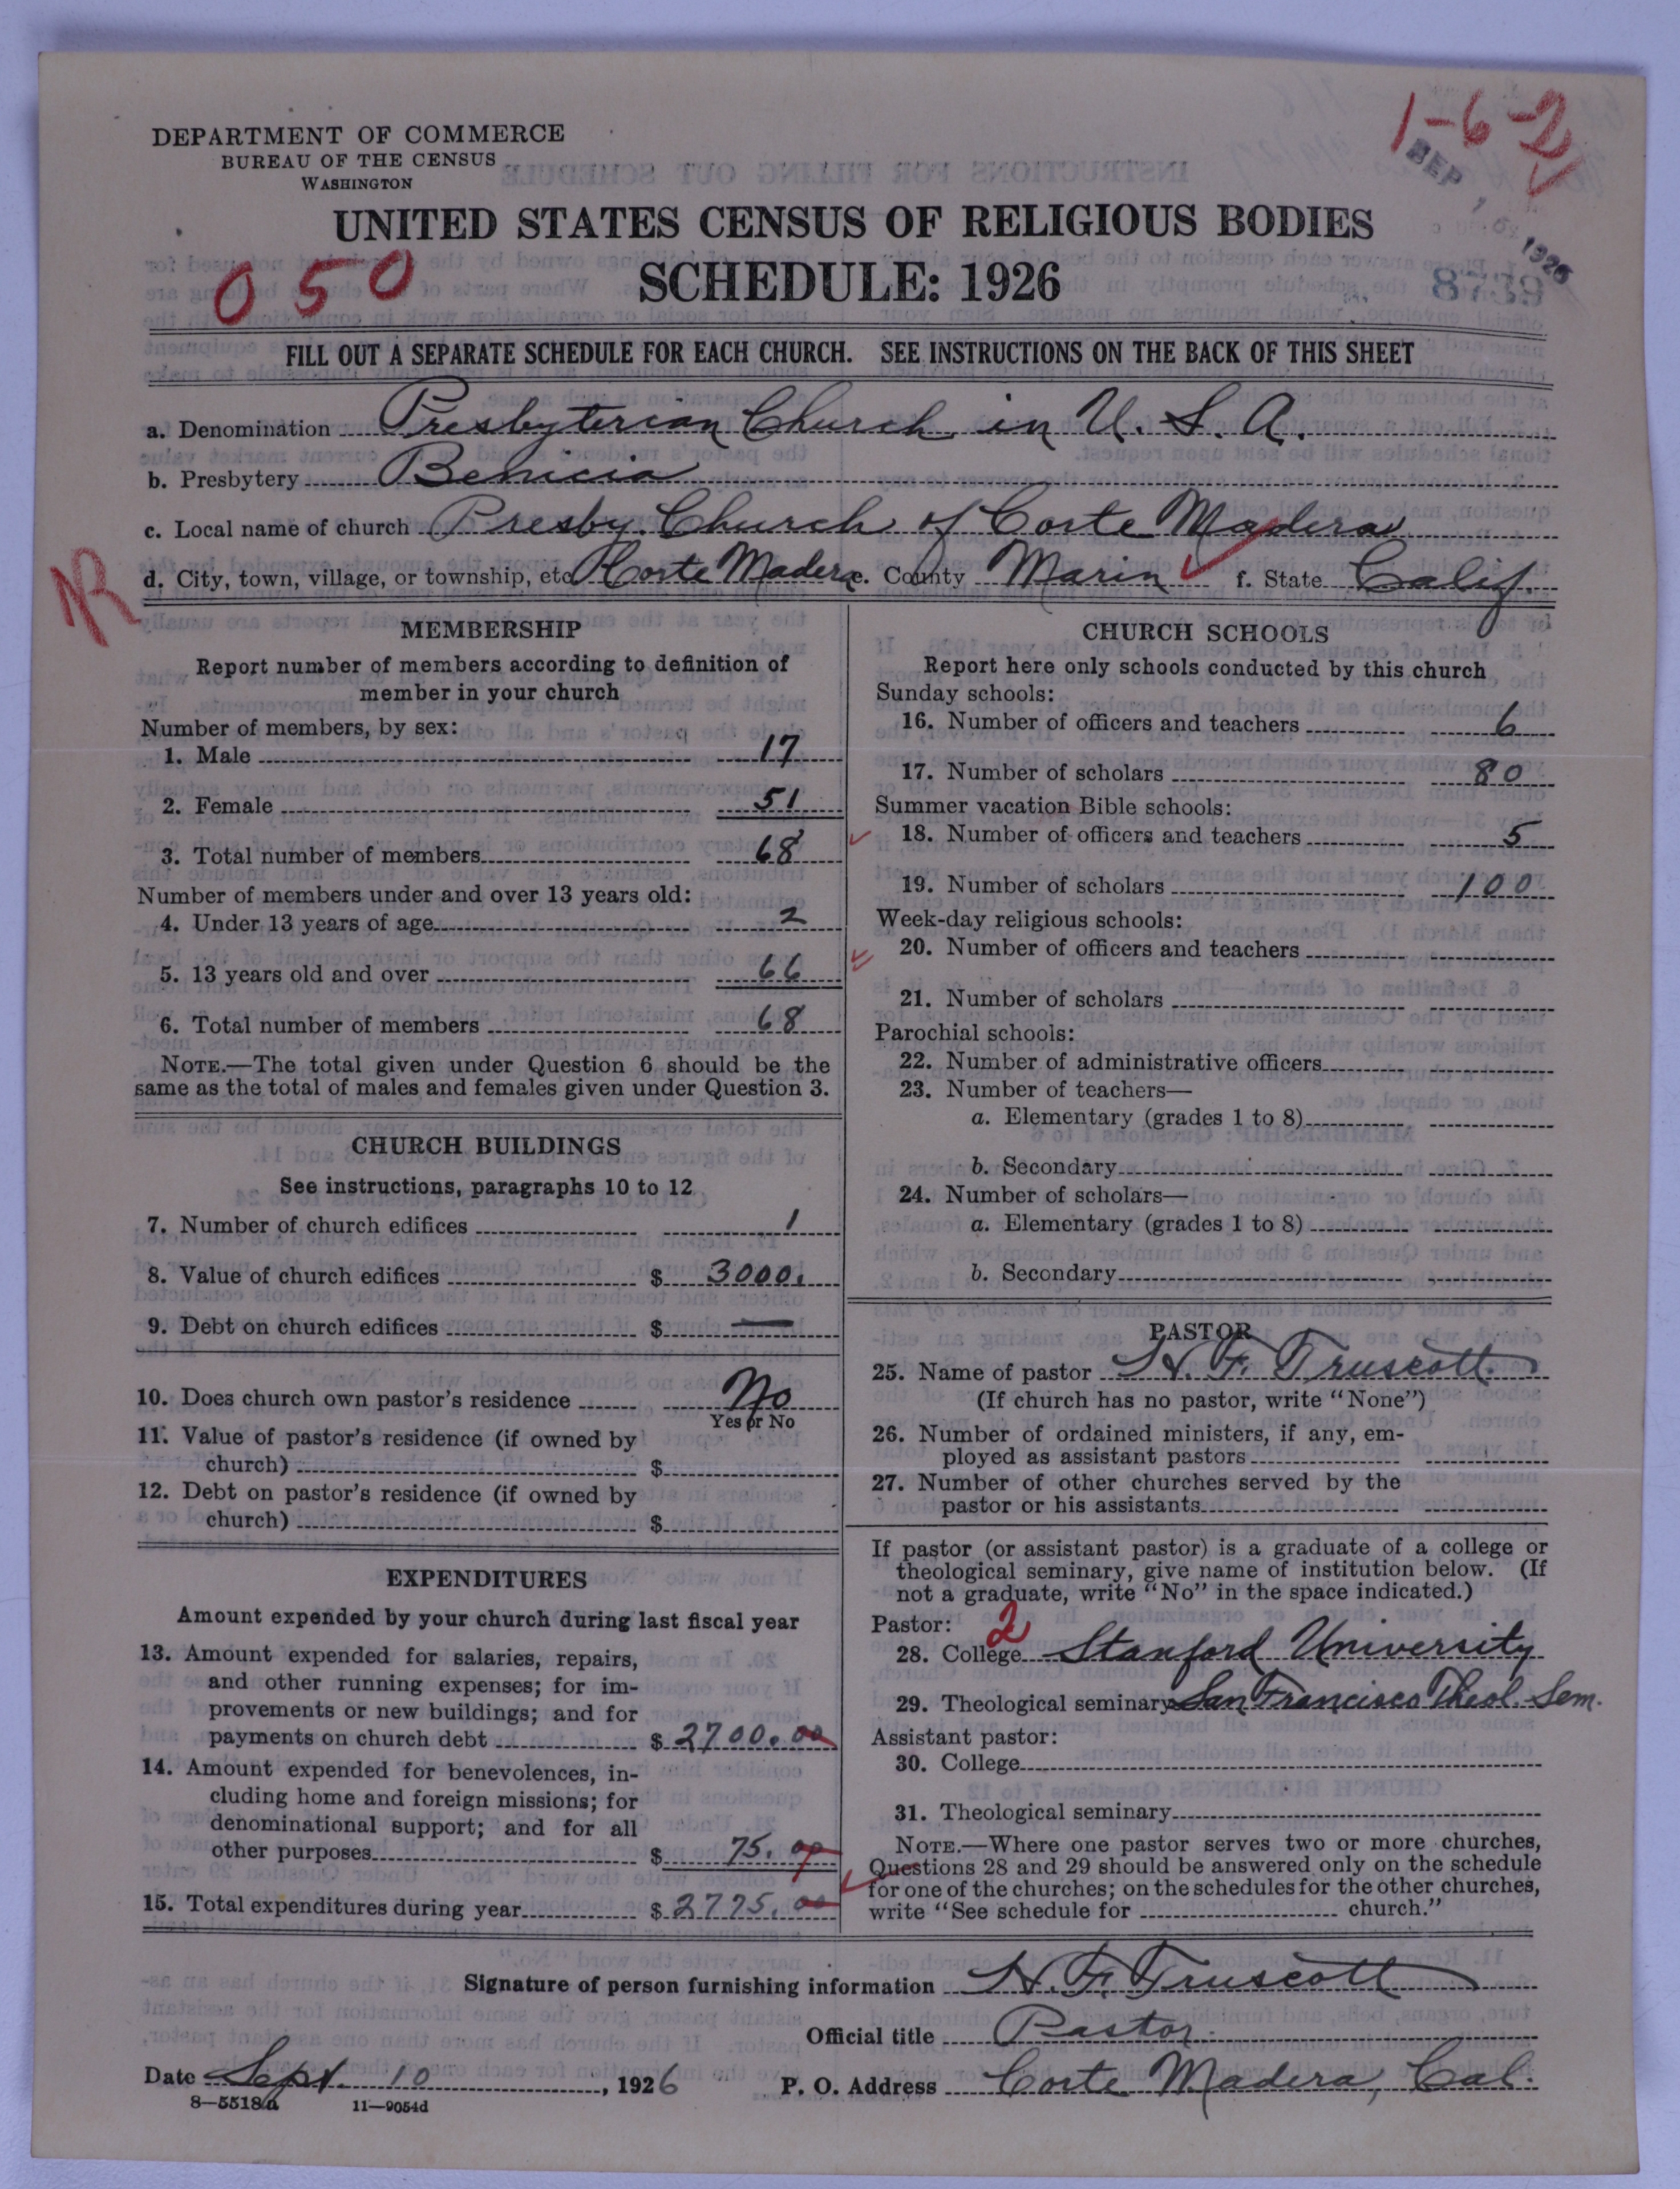 1-6-2
DEPARTMENT OF COMMERCE
BUREAU OF THE CENSUS
WASHINGTON
SEP 1926
UNITED STATES CENSUS OF RELIGIOUS BODIES
050
SCHEDULE: 1926
8739
FILL OUT A SEPARATE SCHEDULE FOR EACH CHURCH. SEE INSTRUCTIONS ON THE BACK OF THIS SHEET
a. Denomination Presbyterian Church in U. S. A.
b. Presbytery Benicia
c. Local name of church Presby. Church of Corte Madera
d. City, town, village, or township, etc. Corte Madera e. County Marin f. State Calif.
MEMBERSHIP
Report number of members according to definition of
member in your church
Number of members, by sex:
1. Male 17
2. Female 51
3. Total number of members 68
Number of members under and over 13 years old:
4. Under 13 years of age 2
5. 13 years old and over 66
6. Total number of members 68
NOTE.—The total given under Question 6 should be the
same as the total of males and females given under Question 3.
CHURCH BUILDINGS
See instructions, paragraphs 10 to 12
7. Number of church edifices 1
8. Value of church edifices $ 3000.
9. Debt on church edifices $ —
10. Does church own pastor's residence No
Yes or No
11. Value of pastor's residence (if owned by
church) $
12. Debt on pastor's residence (if owned by
church) $
EXPENDITURES
Amount expended by your church during last fiscal year
13. Amount expended for salaries, repairs,
and other running expenses; for im-
provements or new buildings; and for
payments on church debt $ 2700.00
14. Amount expended for benevolences, in-
cluding home and foreign missions; for
denominational support; and for all
other purposes $ 75.00
15. Total expenditures during year $ 2775.00
CHURCH SCHOOLS
Report here only schools conducted by this church
Sunday schools:
16. Number of officers and teachers 6
17. Number of scholars 80
Summer vacation Bible schools:
18. Number of officers and teachers 5
19. Number of scholars 100
Week-day religious schools:
20. Number of officers and teachers
21. Number of scholars
Parochial schools:
22. Number of administrative officers
23. Number of teachers—
a. Elementary (grades 1 to 8)
b. Secondary
24. Number of scholars—
a. Elementary (grades 1 to 8)
b. Secondary
PASTOR
25. Name of pastor H. F. Truscott
(If church has no pastor, write "None")
26. Number of ordained ministers, if any, em-
ployed as assistant pastors
27. Number of other churches served by the
pastor or his assistants
If pastor (or assistant pastor) is a graduate of a college or
theological seminary, give name of institution below. (If
not a graduate, write "No" in the space indicated.)
Pastor: 2
28. College Stanford University
29. Theological seminary San Francisco Theol. Sem.
Assistant pastor:
30. College
31. Theological seminary
NOTE.—Where one pastor serves two or more churches,
Questions 28 and 29 should be answered only on the schedule
for one of the churches; on the schedules for the other churches,
write "See schedule for church."
Signature of person furnishing information H. F. Truscott
Official title Pastor
Date Sept. 10, 1926 P. O. Address Corte Madera, Cal.
8—5518a 11—9054d